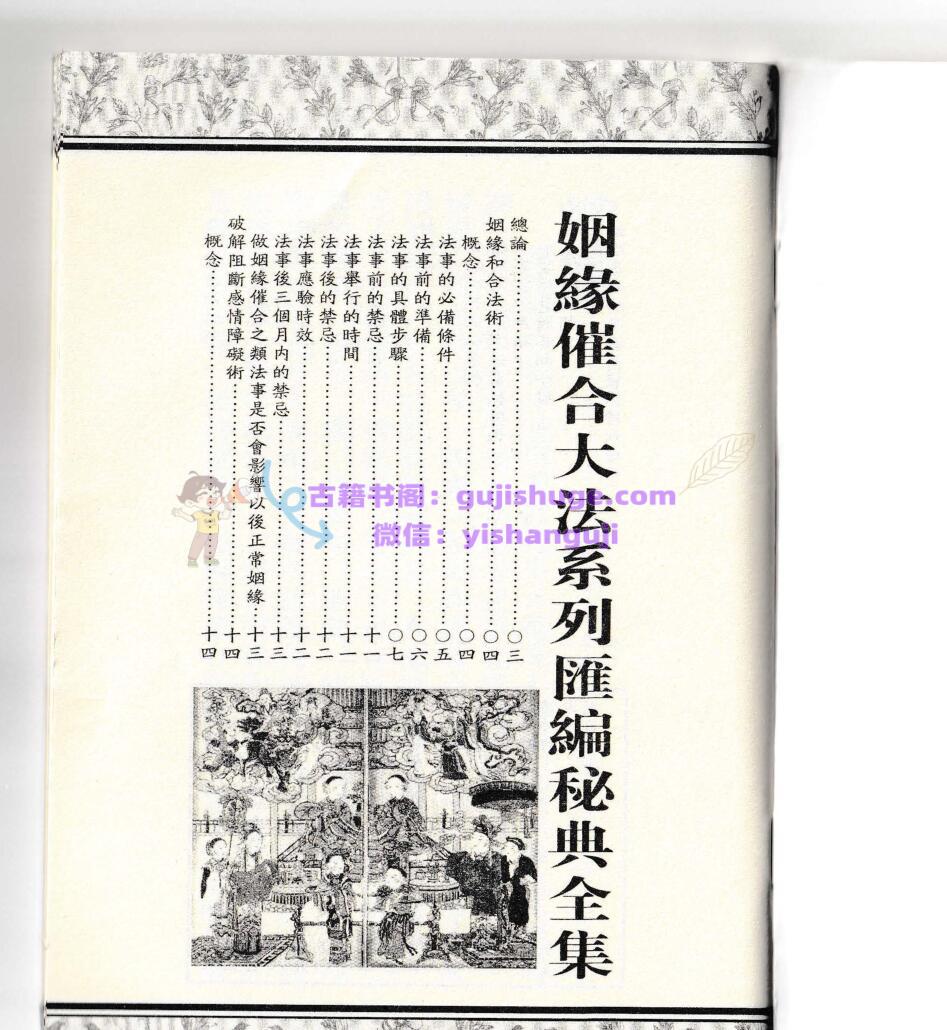 姻緣催合大法系列匯編秘典全集
總論……〇三
姻緣和合法術……〇四
概念……〇四
法事的必備條件……〇五
法事前的準備……〇六
法事的具體步驟……〇七
法事前的禁忌……十一
法事舉行的時間……十一
法事後的禁忌……十二
法事應驗時效……十二
法事後三個月内的禁忌……十三
做姻緣催合之類法事是否會影響以後正常姻緣……十三
破解阻斷感情障礙術……十四
概念……十四
古籍书阁：gujishuge.com
微信：yishanguji